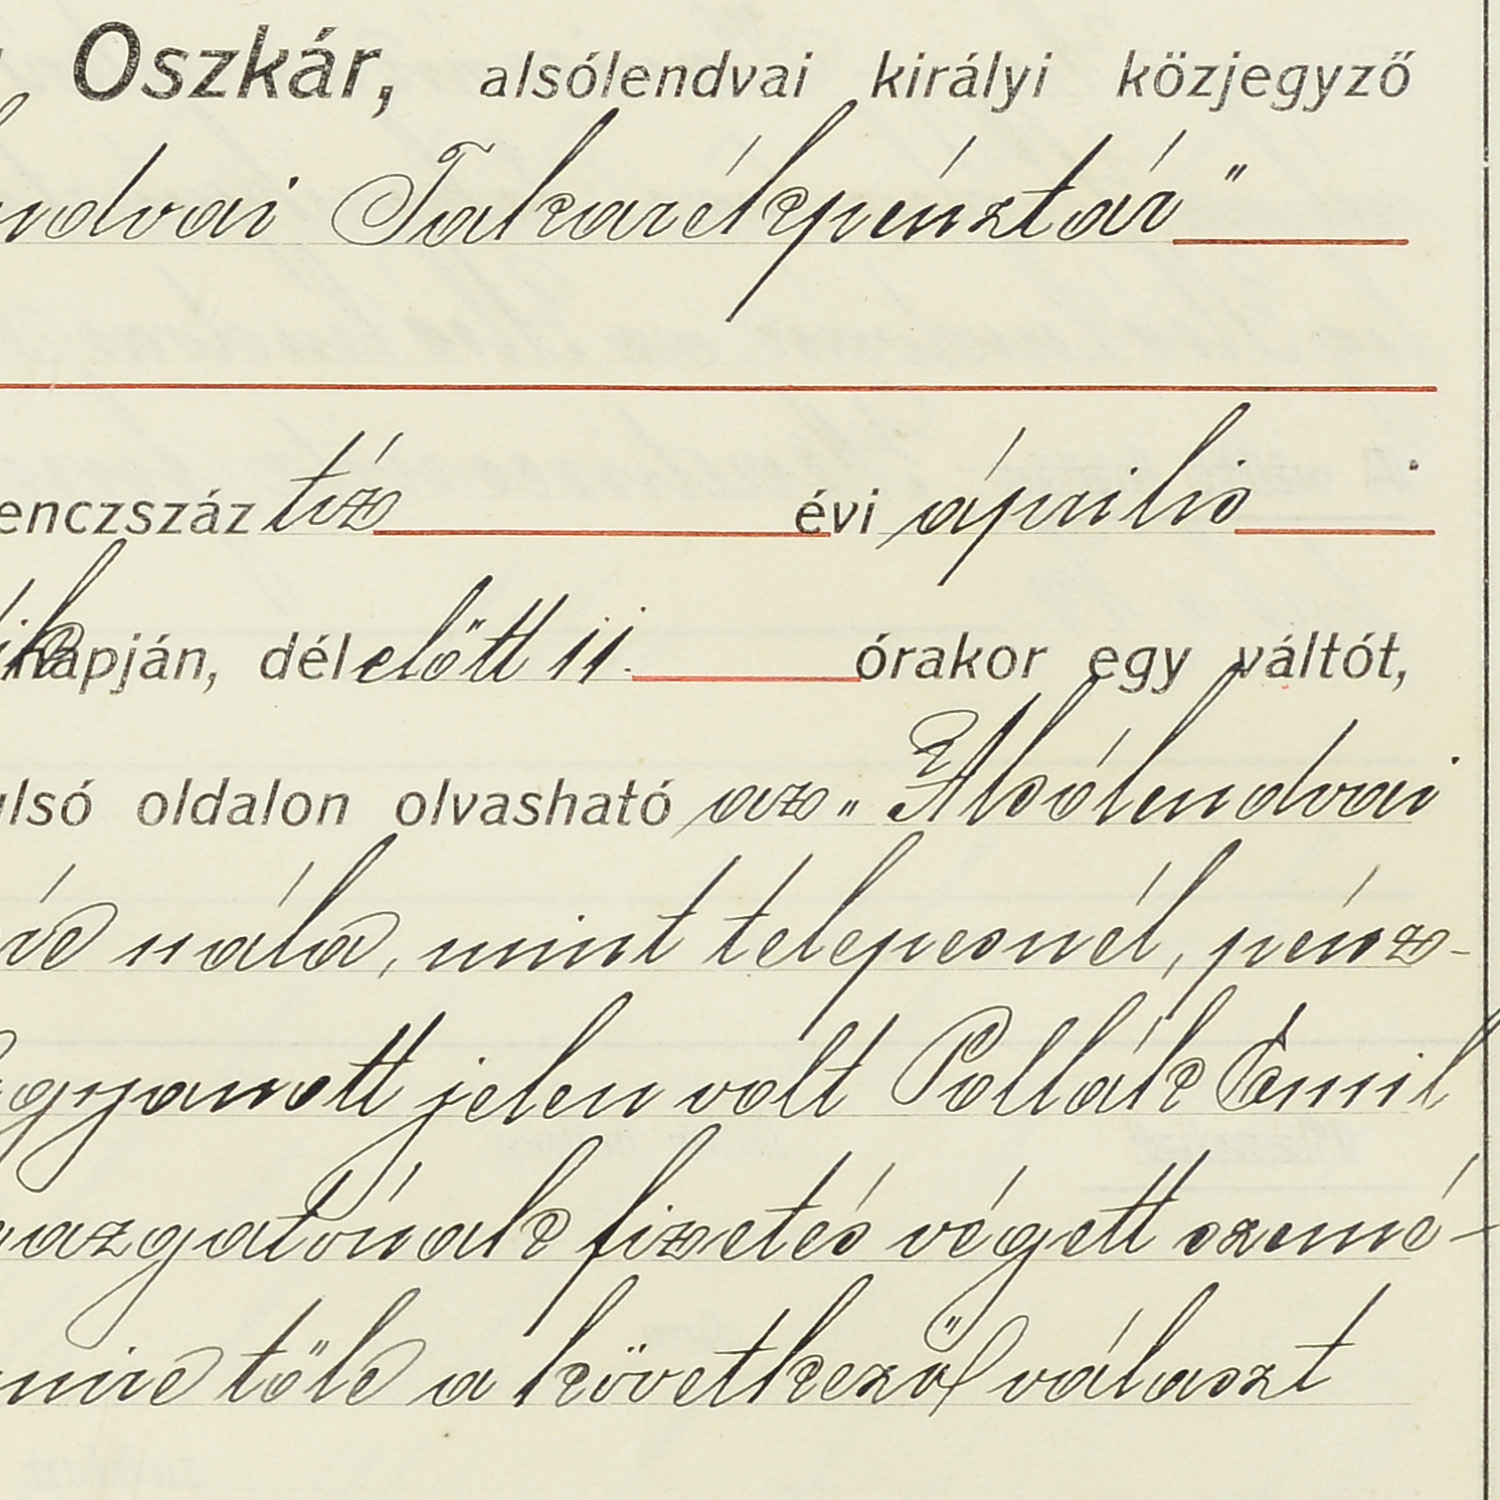 Oszkár, alsólendvai királyi közjegyző
ndvai Takarékpénztár"
enczszáz tíz évi április
ik napján, dél előtt 11. órakor egy váltót,
ulsó oldalon olvasható az „Alsólendvai
nála, mint telepesnél, pénz-
ugyanott jelen volt Pollák Emil
azgatónak fizetés végett szemé-
mire tőle a következő választ